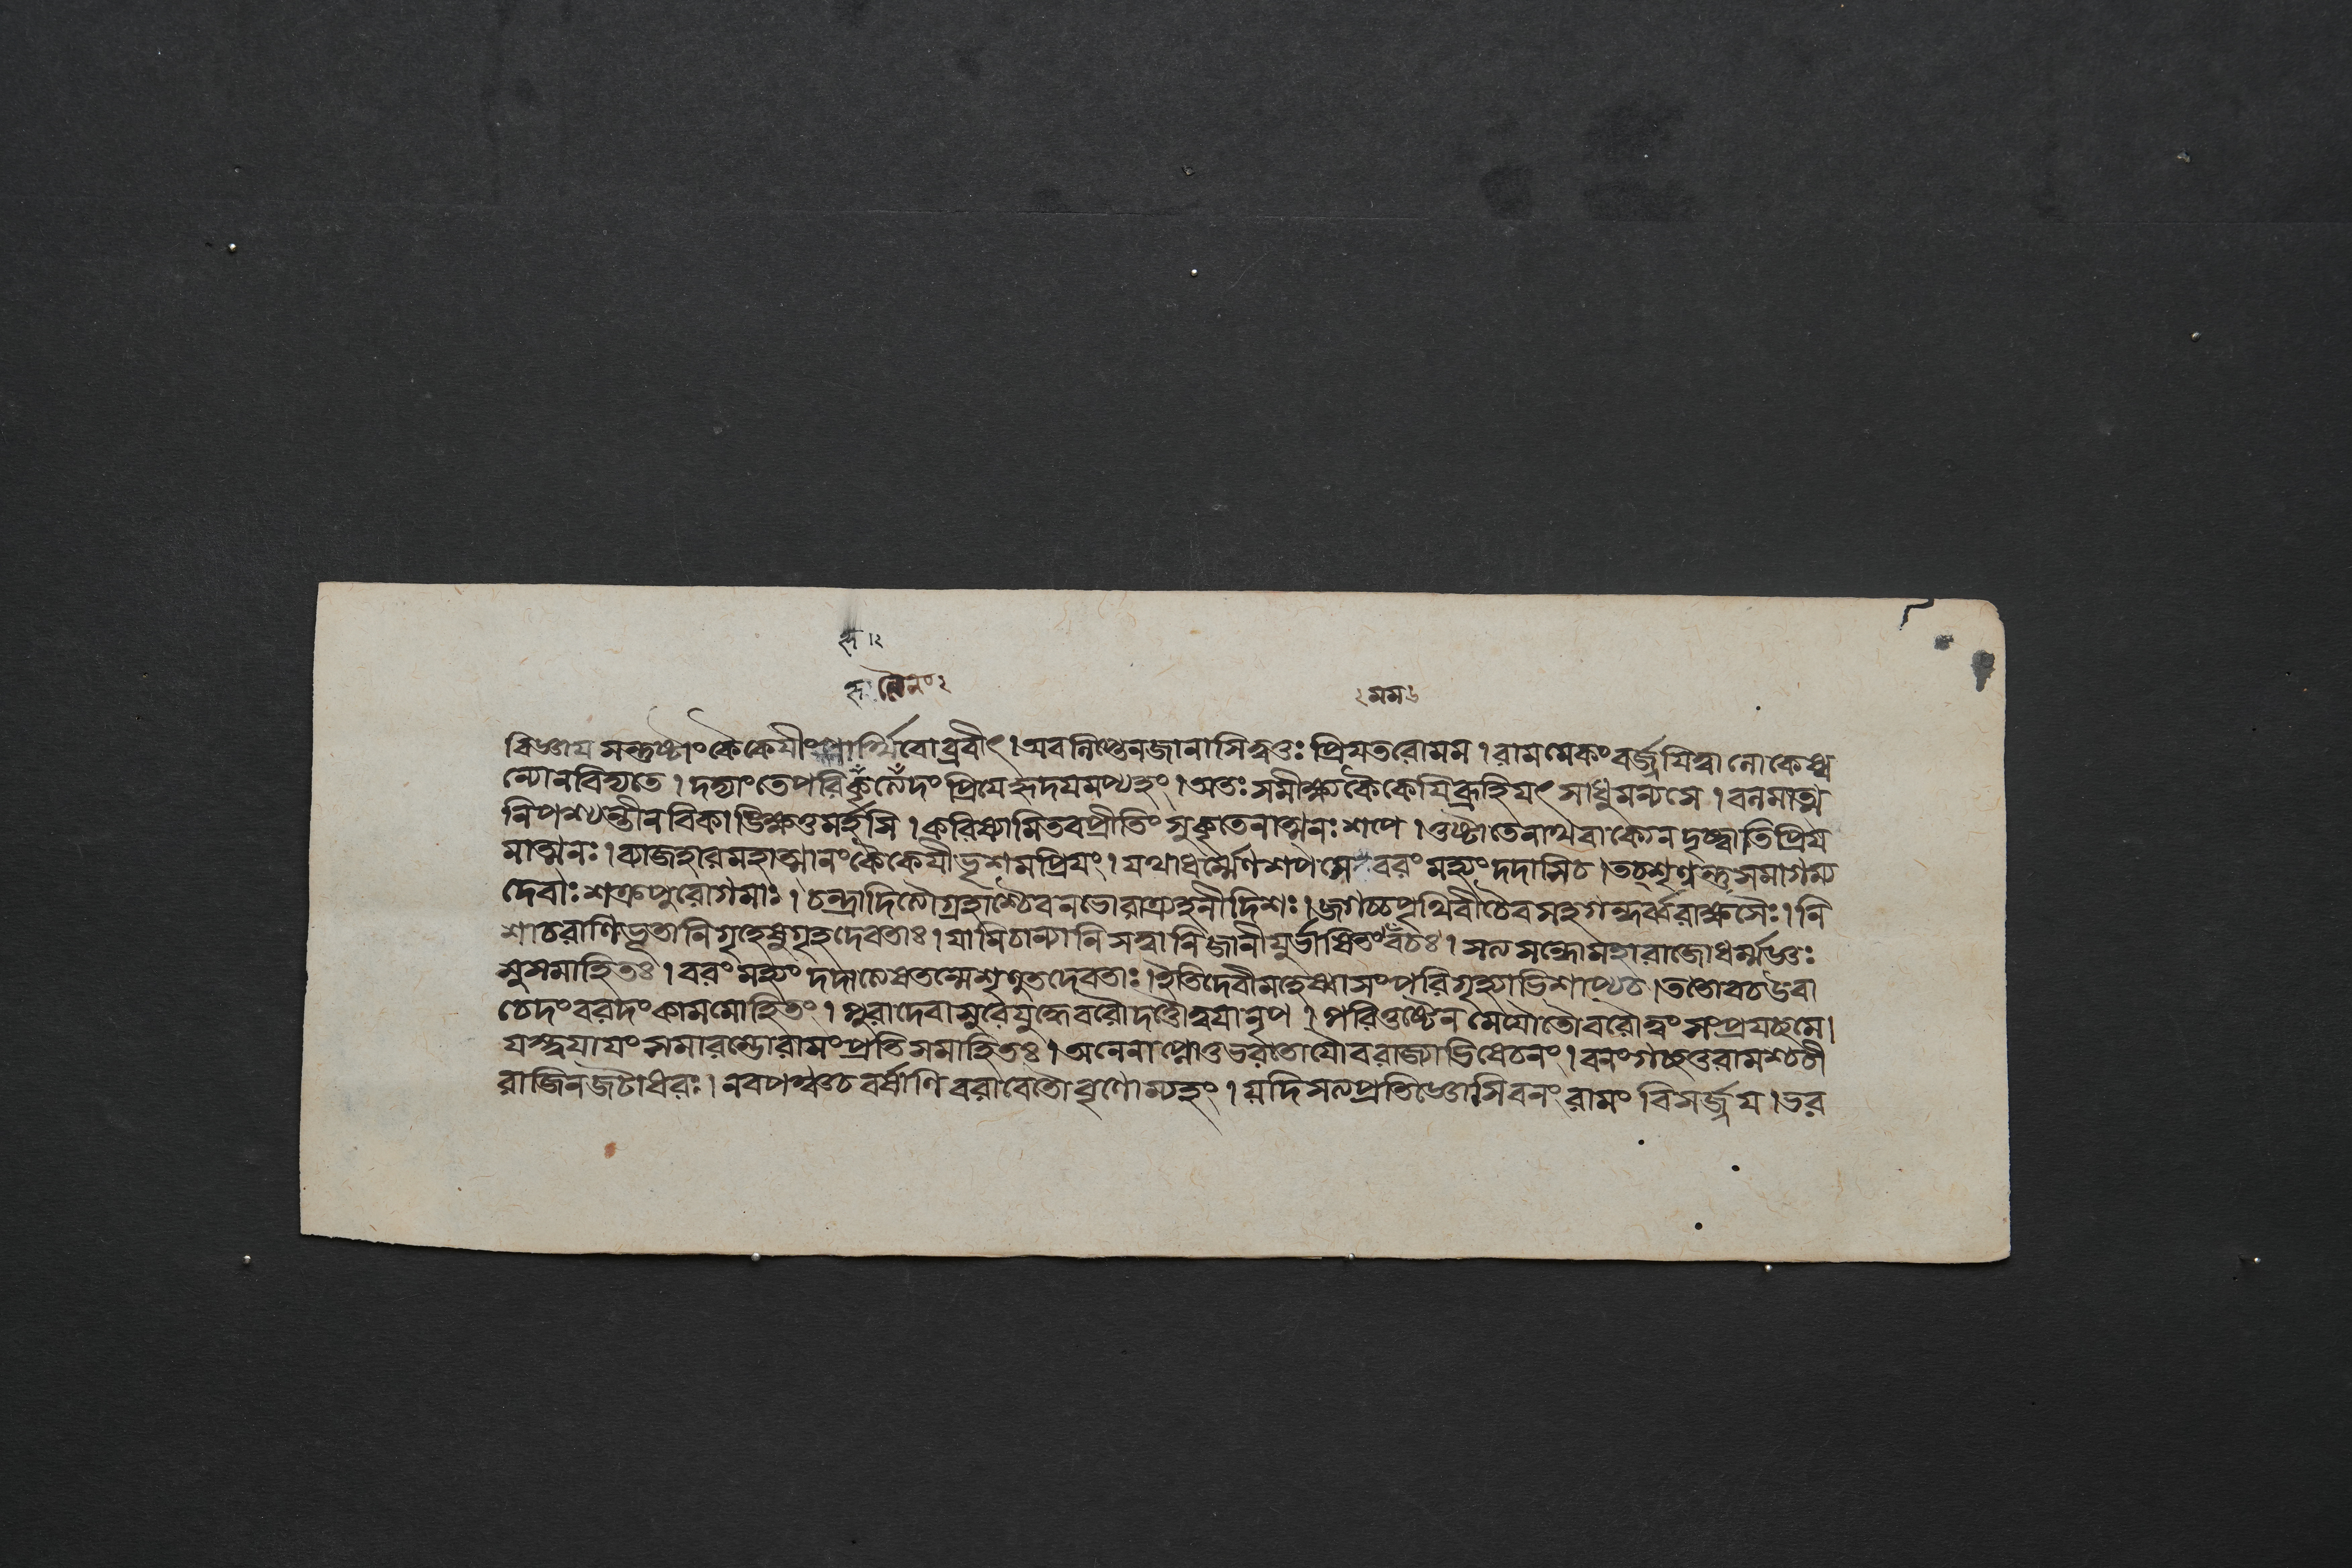 হৃদ ১২
হৃ লৈনং ২
২ মম ৬
বিজ্ঞায মন্ত্রুষ্টাং কৈকেযীং পার্থিবোব্রবীৎ। অবলিপ্তেনজানাসিত্বত্তঃ প্রিযতরোমম। রামমেকং বর্জ্জযিত্বালোকেষ্ব
ন্যোনবিদ্যতে। দদ্যাংতেপরিকৃত্যেদং প্রিযেহৃদযমপ্যহং। অতঃ সমীক্ষ্যকৈকেযিব্রূহিযৎ সাধুমন্যসে। বলমাত্ম
নিপশ্যন্তীনবিকাঙ্ক্ষিতুমর্হসি। করিষ্যামিতবপ্রীতিং সুকৃতেনাত্মনঃ শপে। তুষ্টাতেনাথবাক্যেনদৃষ্ট্বাতিপ্রিয
মাত্মনঃ। ব্যাজহারমহাত্মানংকৈকেযীভৃশমপ্রিযং। যথাধর্ম্মেণশপসে বরং মহ্যং দদাসিচ। তচ্শৃণ্বন্তুসমাগম্য
দেবাঃ শক্রপুরোগমাঃ। চন্দ্রাদিত্যৌগ্রহাশ্চৈবনভোরাত্র্যহনীদিশঃ। জগচ্চপৃথিবীচৈবসহগন্ধর্ব্বরাক্ষসৈঃ। নি
শাচরাণিভূতানিগৃহেষুগৃহদেবতাঃ। যানিচান্যানিসত্বানিজানীযুর্ভাষিতংবচঃ। সত্যসন্ধোমহারাজোধর্ম্মজ্ঞঃ
সুসমাহিতঃ। বরং মহ্যং দদাত্যেষতন্মেশৃণুতদেবতাঃ। ইতিদেবীমহেষ্বাসংপরিগৃহ্যাভিশাপ্যচ। ততোবচউবা
চেদংবরদংকামমোহিতং। পুরাদেবাসুরেযুদ্ধেবরৌদত্তৌত্বযানৃপ। পরিতুষ্টেন মেযৌতৌবরৌত্বং সংপ্রযচ্ছমে।
যস্ত্বযাযং সমারম্ভোরামংপ্রতিসমাহিতঃ। অনেনাপ্নোতুভরতোযৌবরাজ্যাভিষেচনং। বনংগচ্ছতুরামশ্চচী
রাজিনজটাধরঃ। নবপঞ্চচবর্ষাণিবরাবেতৌবৃণোম্যহং। যদিসত্যপ্রতিজ্ঞোসিবনং রামং বিসর্জ্জয। ভর